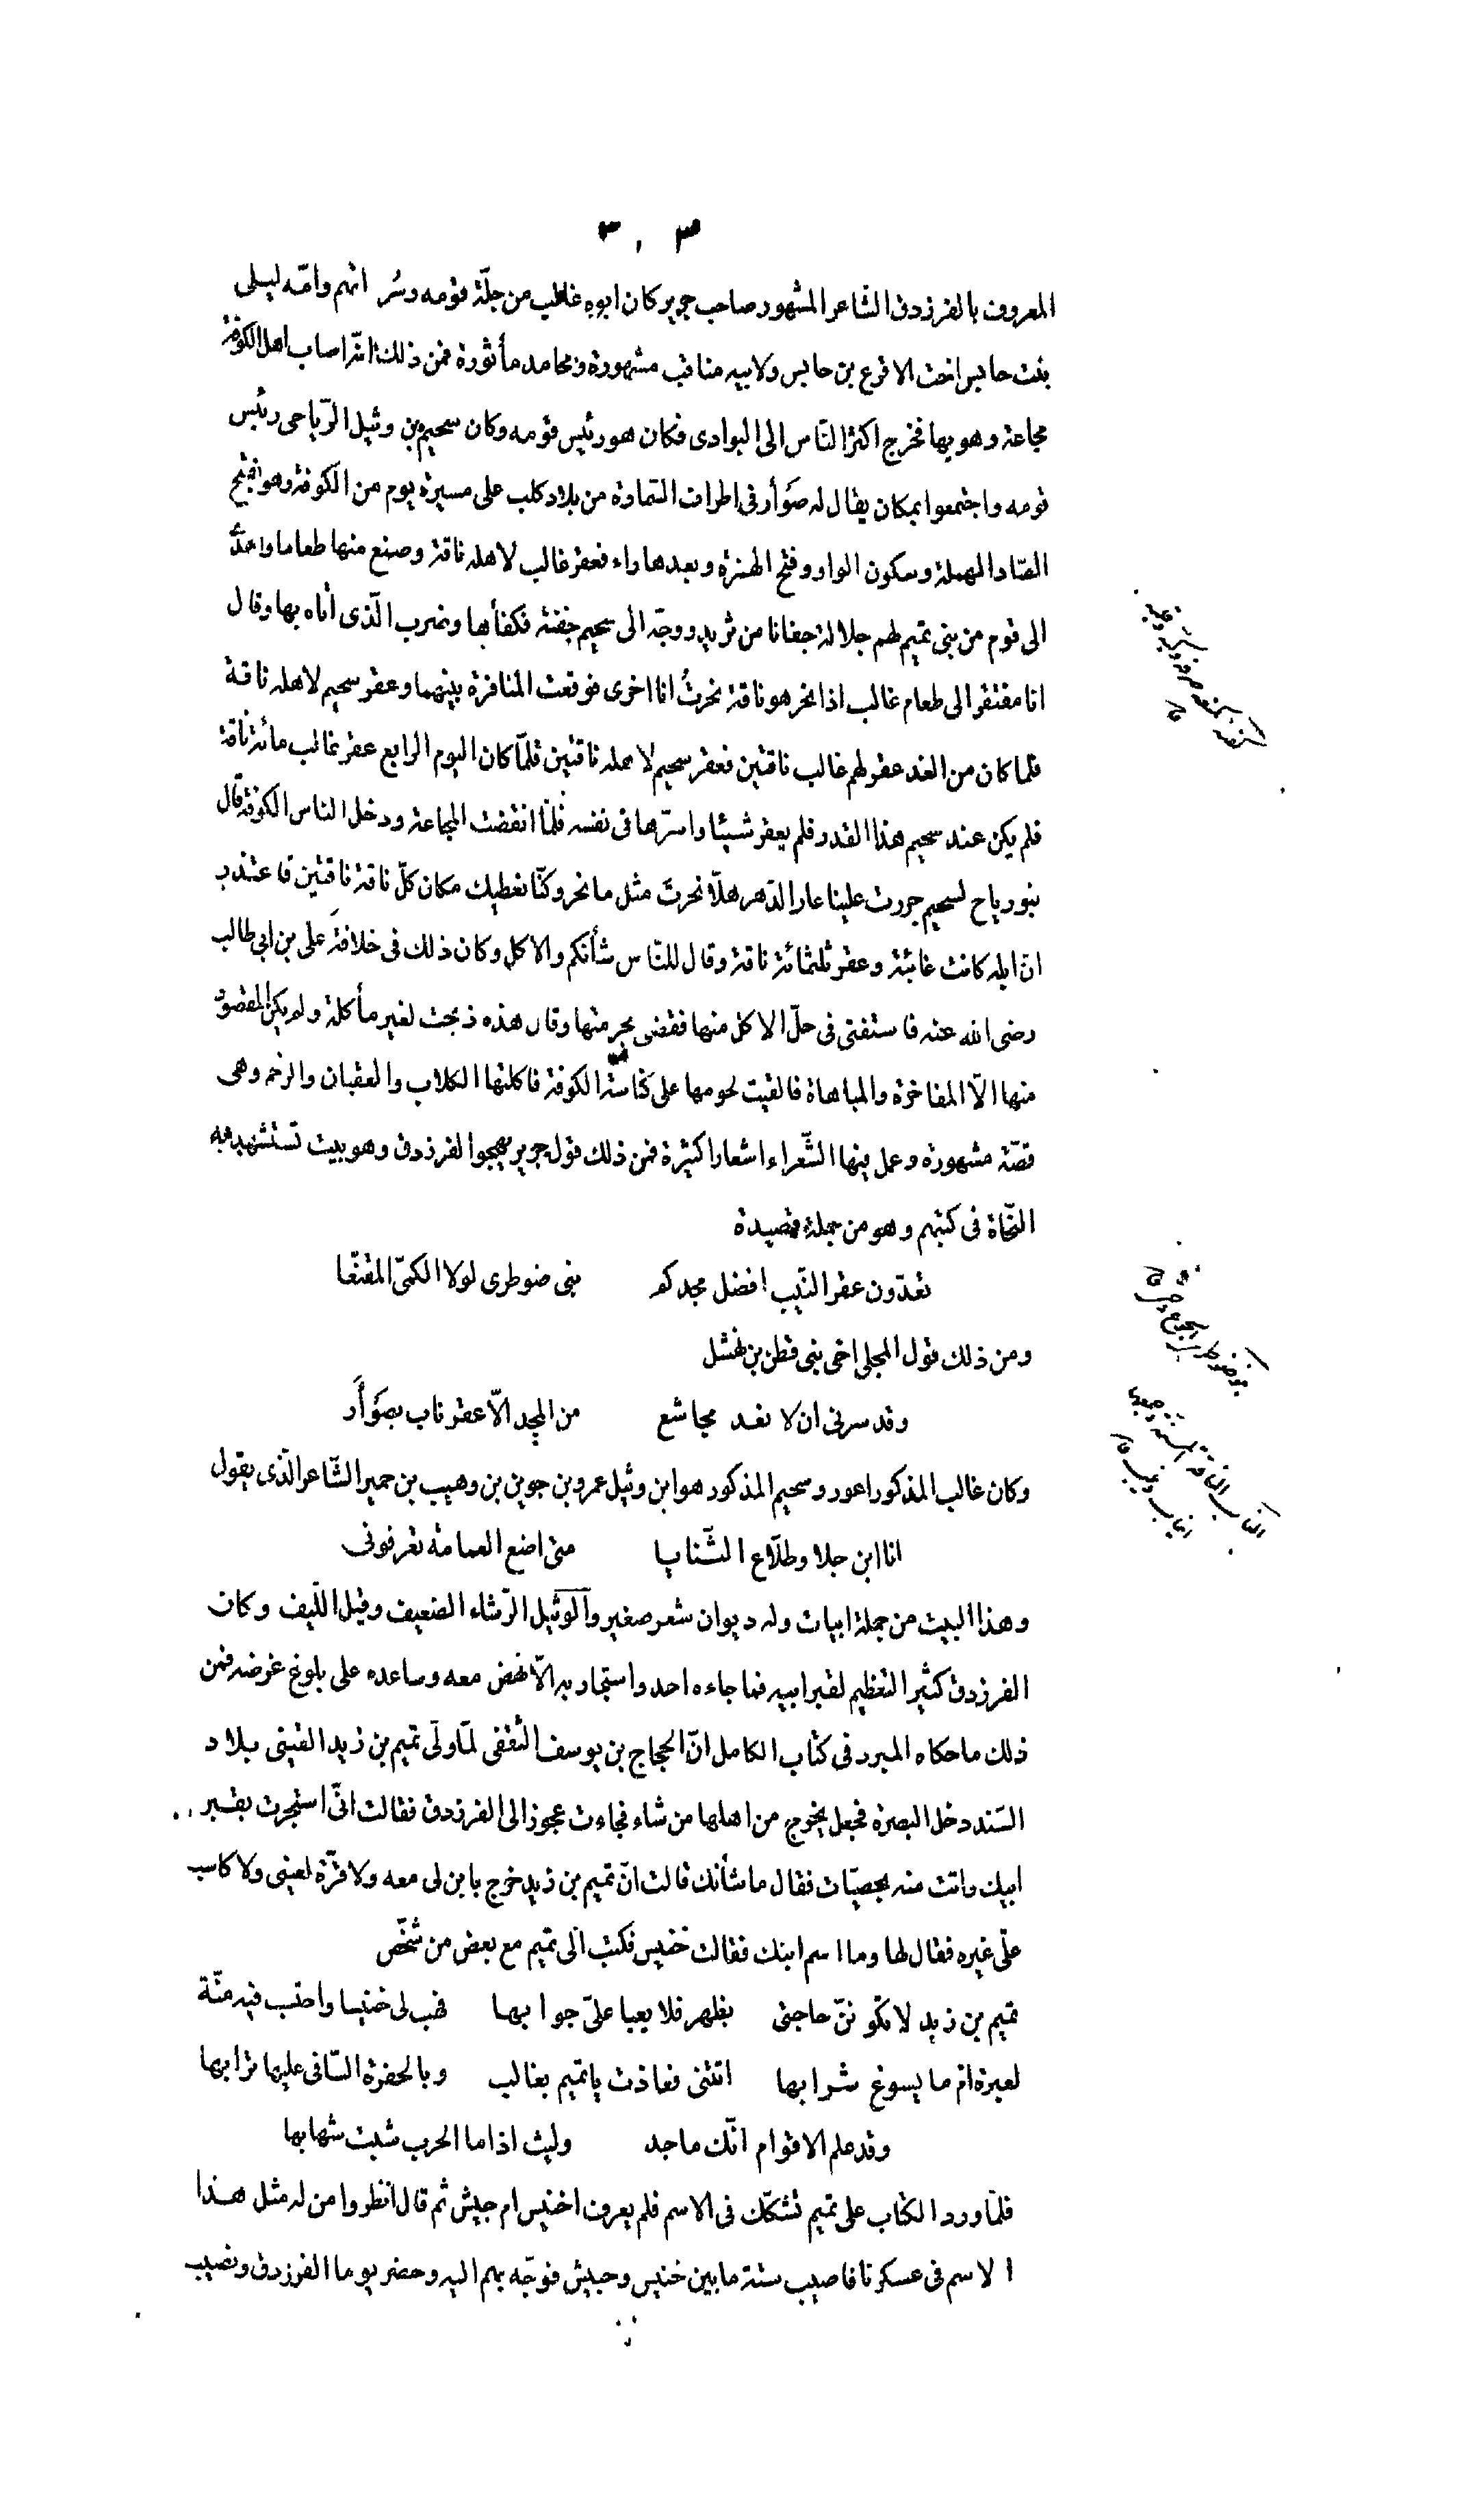 ٣٠٣
المعروف بالفرزدق الشاعر المشهور صاحب جرير كان ابوه غالب من جلّة قومه وسراتهم وامّه ليلى
بنت حابس اخت الاقرع بن حابس ولابيه مناقب مشهورة ومحامد مأثورة فمن ذلك انّه اصاب اهل الكوفة
مجاعة وهو بها فخرج اكثر النّاس الى البوادى فكان هو رئيس قومه وكان سحيم بن وثيل الرّياحى رئيس
قومه واجتمعوا بمكان يقال له صَوأر فى اطراف السّماوة من بلاد كلب على مسيرة يوم من الكوفة وهو بفتح
الصّاد المهملة وسكون الواو وفتح الهمزة وبعدها راء فعقر غالب لاهله ناقة وصنع منها طعاما واهدَى
الى قوم من بنى تميم لهم جلالة جفانا من ثريد ووجّه الى سحيم جفنة فكفأها وضرب الّذى اتاه بها وقال
انا مفتقر الى طعام غالب اذا نحر هو ناقة نحرتُ انا اخرى فوقعت المنافرة بينهما وعقر سحيم لاهله ناقة
فلما كان من الغد عقر لهم غالب ناقتين فعقر سحيم لاهله ناقتين فلمّا كان اليوم الرابع عقر غالب مائة ناقة
فلم يكن عند سحيم هذا القدر فلم يعقر شيئا واسرّها فى نفسه فلمّا انقضت المجاعة ودخل الناس الكوفة قال
بنو رياح لسحيم جررت علينا عار الدّهر هلّا نحرتَ مثل ما نحر وكنّا نعطيك مكان كلّ ناقة ناقتين فاعتذر
انّ ابله كانت غائبة وعقر ثلثمائة ناقة وقال للنّاس شأنكم والاكل وكان ذلك فى خلافة على بن ابى طالب
رضى الله عنه فاستفتى فى حلّ الاكل منها فقضى بحرمتها وقال هذه ذبحت لغير مأكلة ولم يكن المقصود
منها الّا المفاخرة والمباهاة فالقيت لحومها على كناسة الكوفة فاكلتها الكلاب والعقبان والرخم وهى
قصّة مشهورة وعمل فيها الشّعراء اشعارا كثيرة فمن ذلك قول جرير يهجوا الفرزدق وهو بيت تستشهد به
النّحاة فى كتبهم وهو من جملة قصيدة
تعدّون عقر النّيب افضل مجدكم بنى ضوطرى لولا الكمىّ المقنّعا
ومن ذلك قول المحلى اخى بنى قطن بن نهشل
وقد سرنى ان لا تعد مجاشع من المجد الّا عقر ناب بصَوأَر
وكان غالب المذكور اعور وسحيم المذكور هو ابن وثيل عمرو بن جوين بن وهيب بن حمير الشّاعر الّذى يقول
انا ابن جلا وطلّاع الثّنايا متى اضع العمامة تعرفونى
وهذا البيت من جملة ابيات وله ديوان شعر صغير والوثيل الرّشاء الضعيف وقيل اللّيف وكان
الفرزدق كثير التعظيم لقبر ابيه فما جاءه احد واستجار به الّا نهض معه وساعده على بلوغ غرضه فمن
ذلك ما حكاه المبرد فى كتاب الكامل انّ الحجاج بن يوسف الثّقفى لمّا ولّى تميم بن زيد القينى بلاد
السّند دخل البصرة فجعل يخرج من اهلها من شاء فجاءت عجوز الى الفرزدق فقالت انّى استجرت بقبر
ابيك واتت منه بحصيّات فقال ما شأنك قالت انّ تميم بن زيد خرج بابن لى معه ولا قرّة لعينى ولا كاسب
علىّ غيره فقال لها وما اسم ابنك فقالت خنيس فكتب الى تميم مع بعض من شخّص
تميم بن زيد لا تكوننّ حاجتى بظهر فلا يعيا علىّ جوابها فهب لى خنيسا واحتسب فيه منّة
لعبرة ام ما يسوغ شرابها اتتنى فعاذت يا تميم بغالب وبالحفرة السّافى عليها ترابها
وقد علم الاقوام انّك ماجد وليث اذا ما الحرب شبت شهابها
فلمّا ورد الكتاب على تميم تشكّك فى الاسم فلم يعرف اخنيس ام حبيش ثم قال انظروا من له مثل هذا
الاسم فى عسكرنا فاصيب ستة ما بين خنيس وحبيش فوجّه بهم اليه وحضر يوما الفرزدق ونصيب